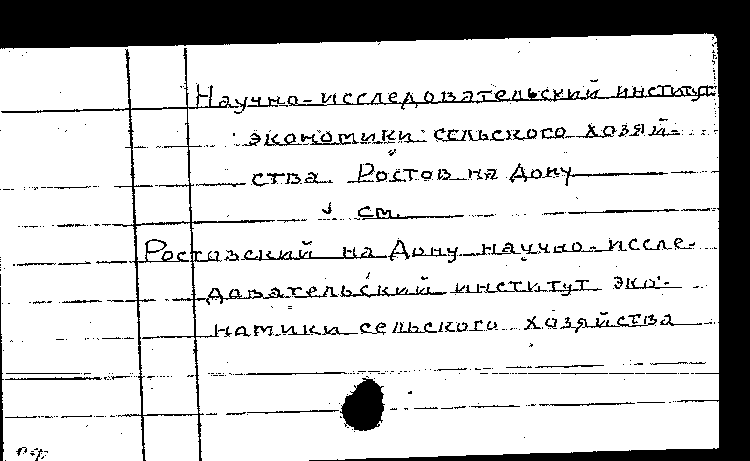 Научно-исследовательский институт
экономики сельского хозяй-
ства Ростов на Дону
см.
Ростовский на Дону научно-иссле-
довательский институт эко-
номики сельского хозяйства